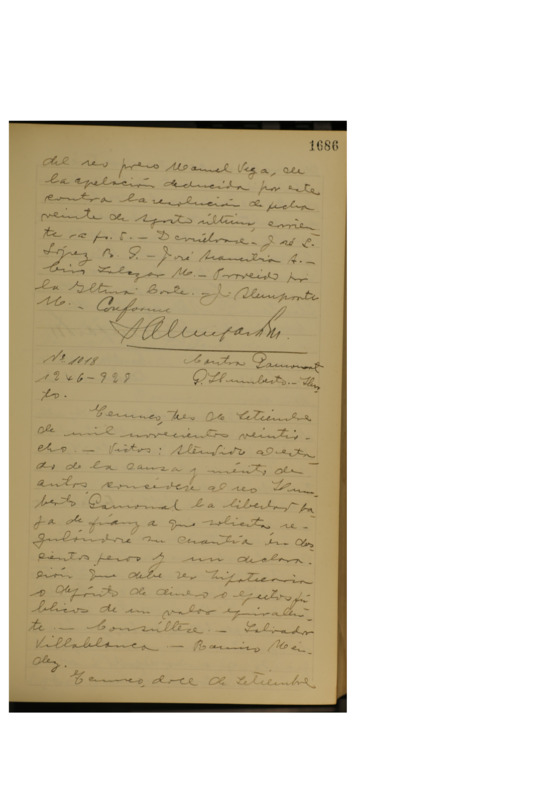 1686
del reo preso Manuel Vega, de
la apelación deducida por este
contra la resolución de fecha
veinte de Agosto último, corrien-
te a fs. 5. — Devuélvase. — José L.
López — José A. —
Luis Salazar M. — Proveído por
la Iltma Corte. — J
M. — Conforme
Nº 1818
Contra
1246-928
Humberto. — Hur-
to.
Temuco, tres de Setiembre
de mil novecientos veintio-
cho. — Vistos: Atendido al esta-
do de la causa y mérito de
autos concédese al reo Hum-
berto la libertad ba-
ja de fianza que solicita re-
gulándose su cuantía en dos-
cientos pesos y un declara-
ción que debe ser hipotecaria
o depósito de dinero o efectos pú-
blicos de un valor equivalen-
te. — Consúltese. — Salvador
Villablanca — Ramiro Mén-
dez.
Temuco, doce de Setiembre